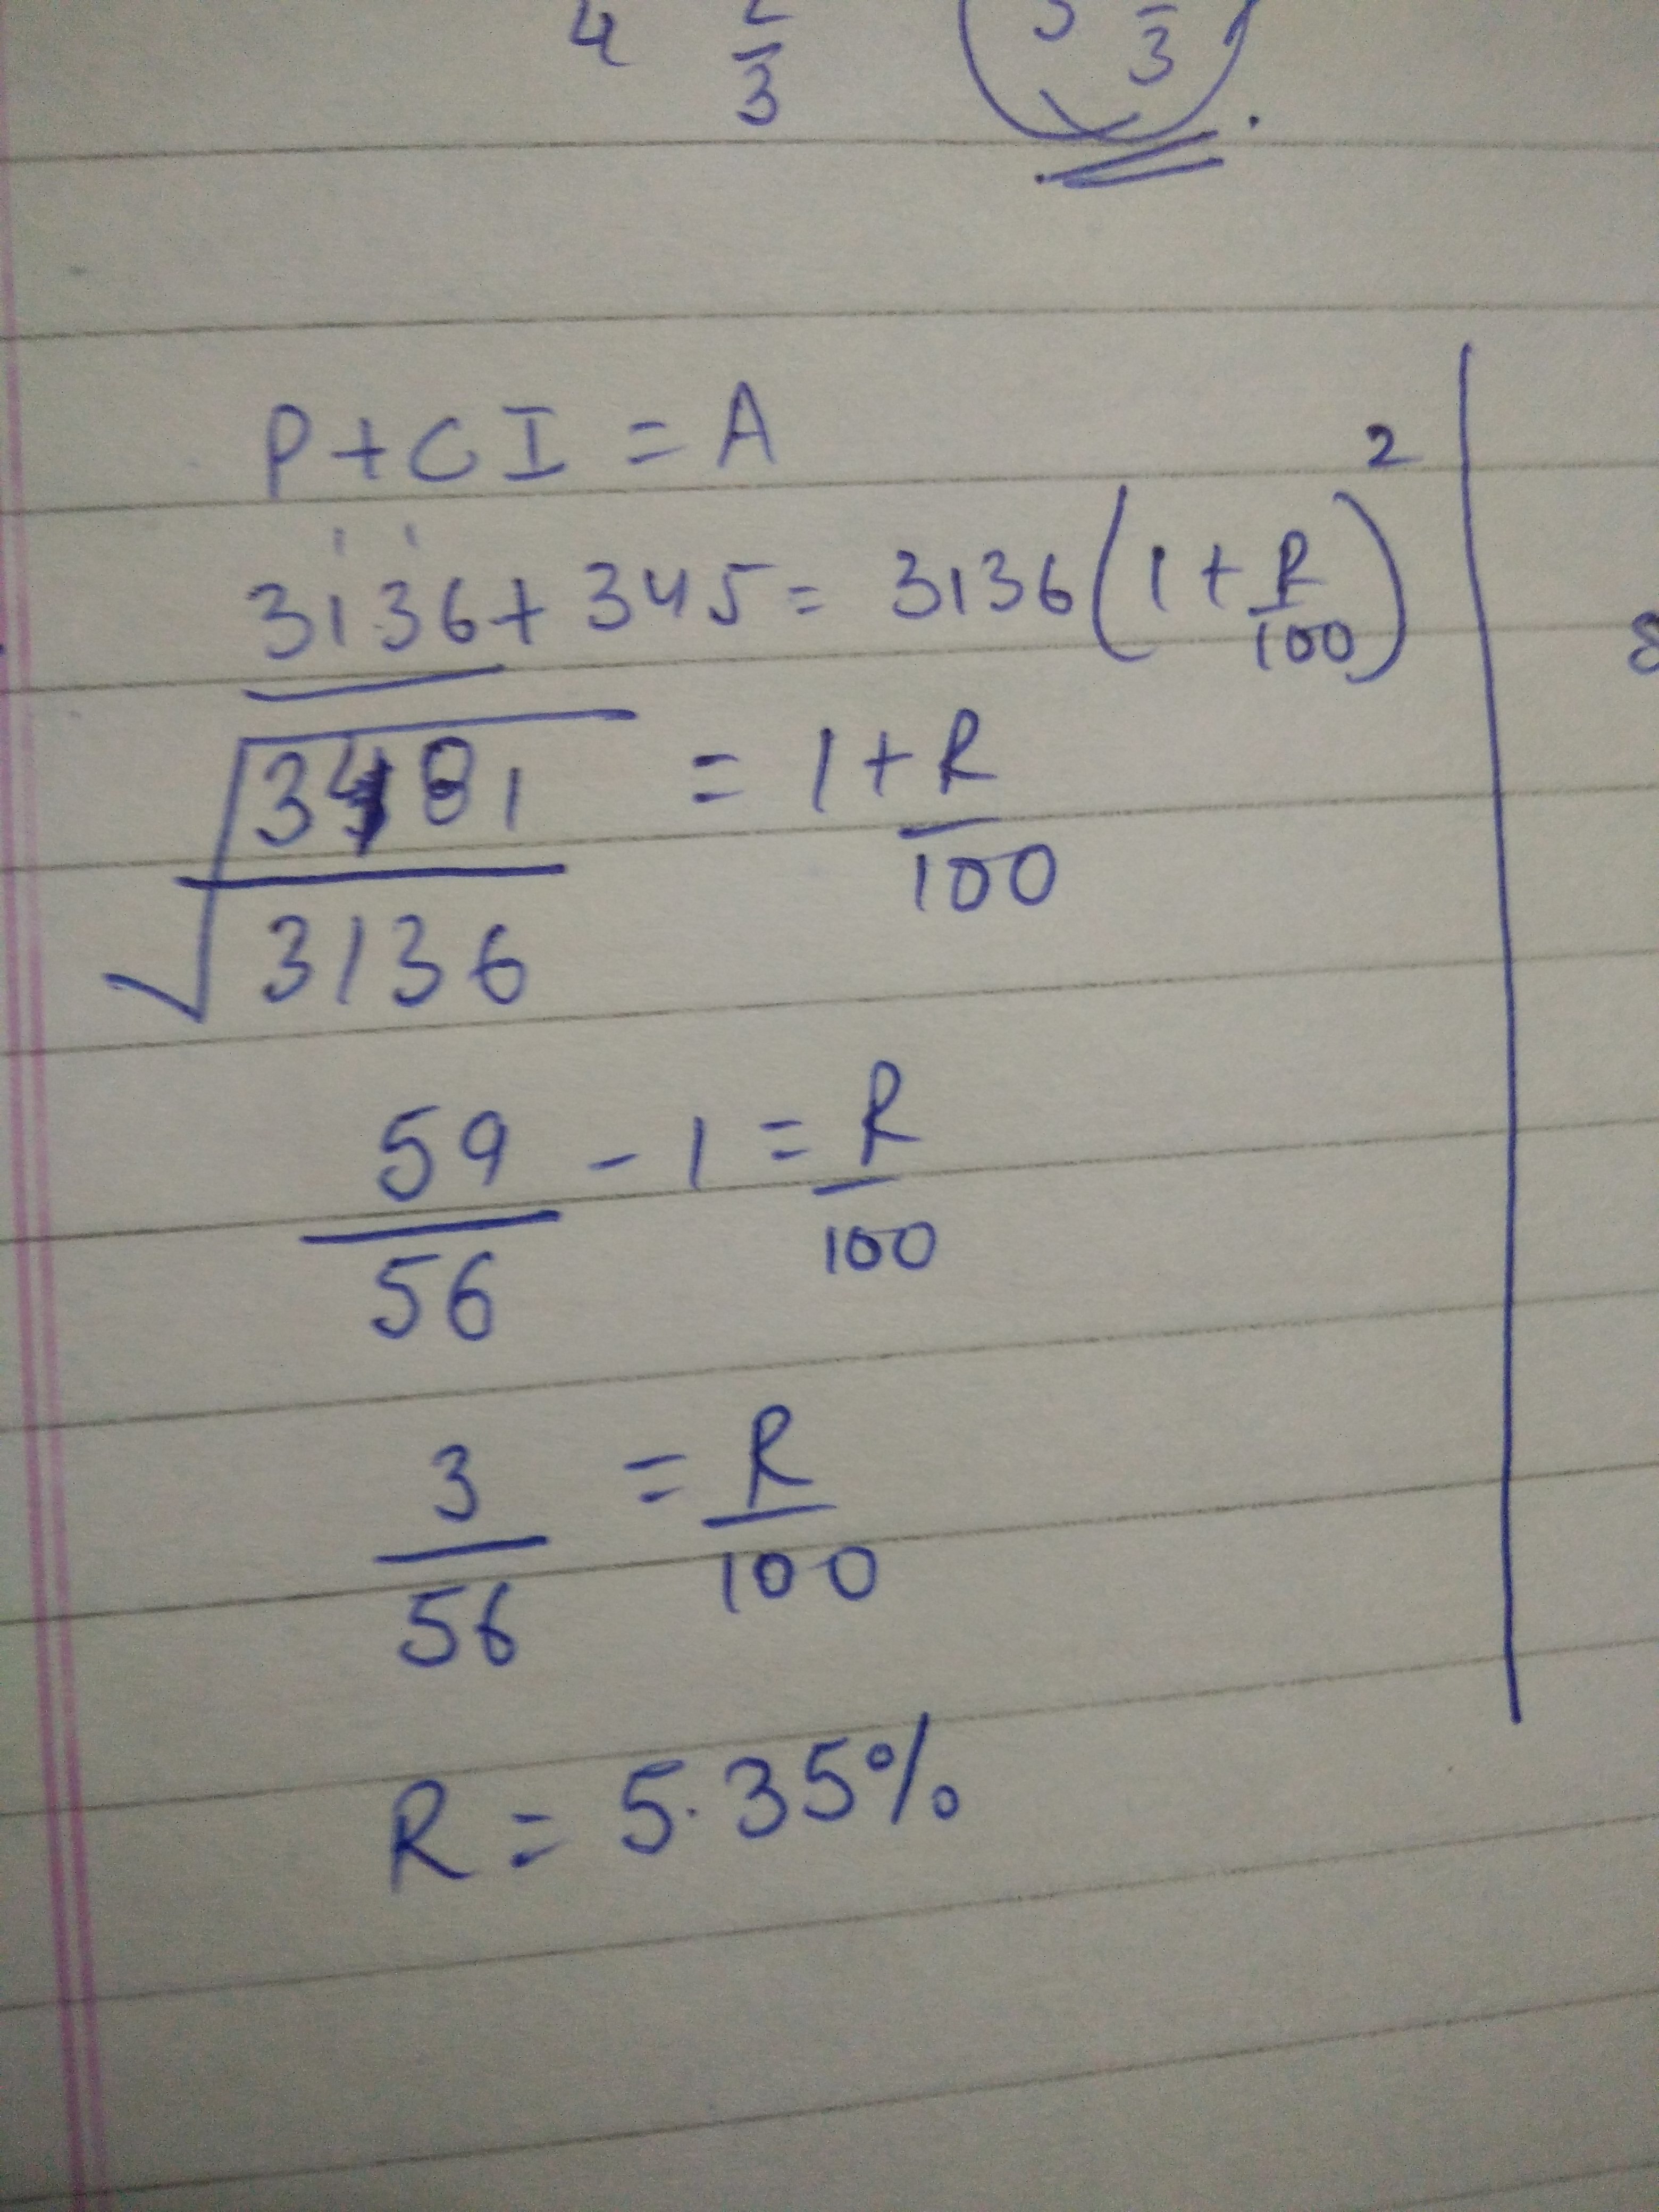 4 2/3 3
P + CI = A
3136 + 345 = 3136 (1 + R/100)²
√3481/3136 = 1 + R/100
59/56 - 1 = R/100
3/56 = R/100
R = 5.35%